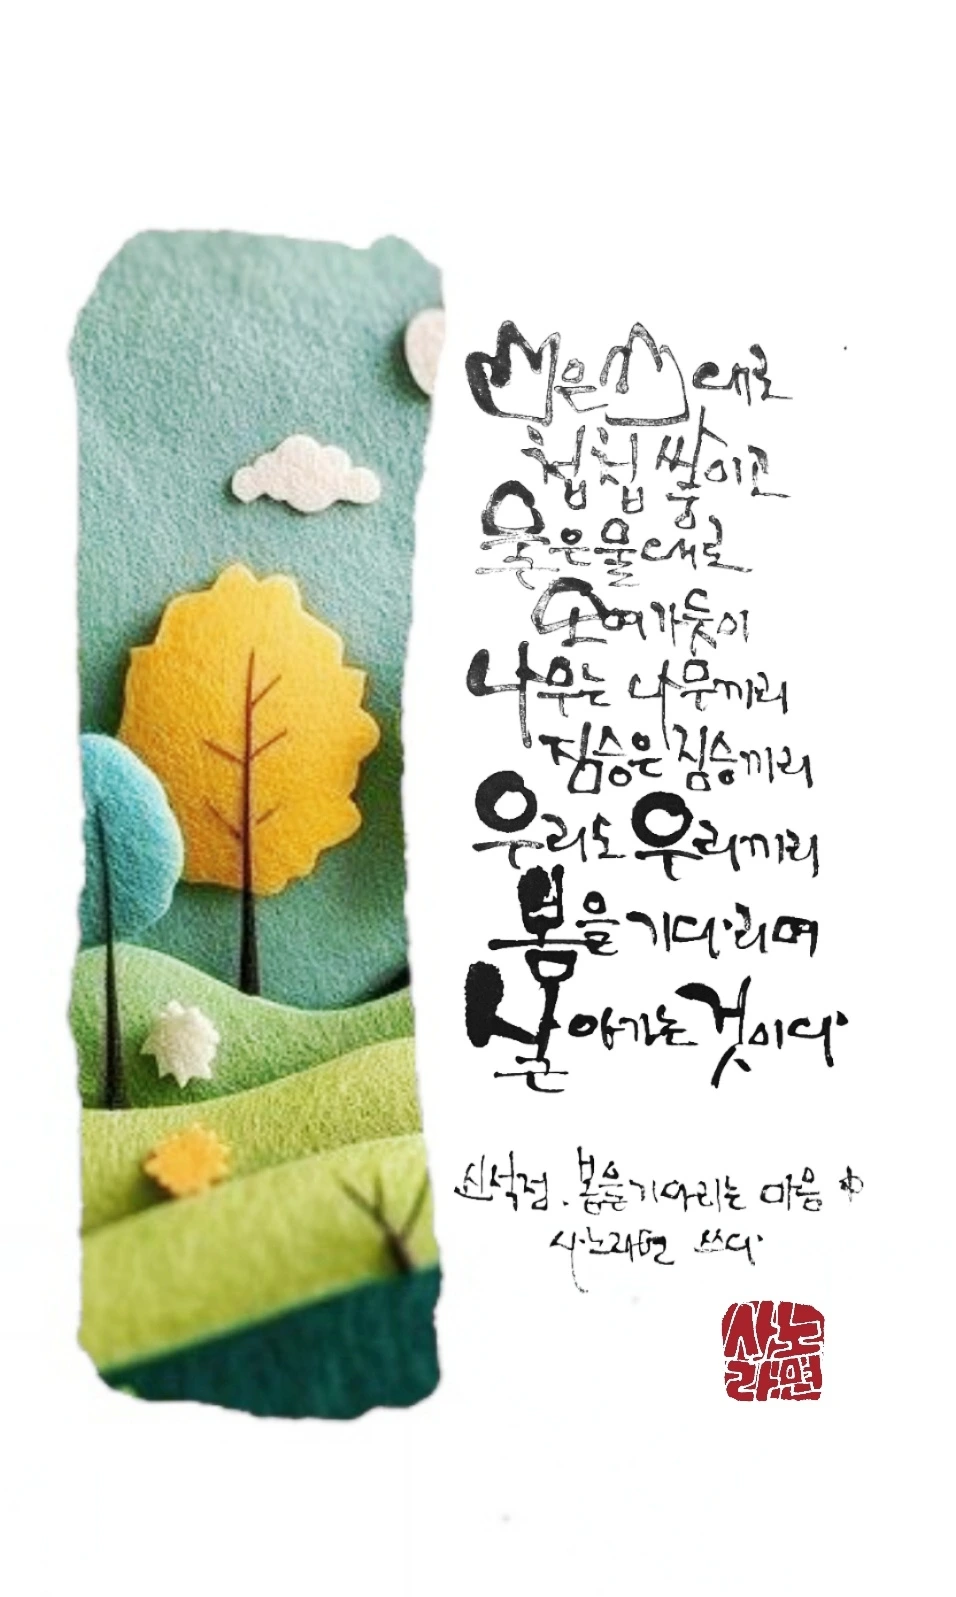 산은 산대로
첩첩 쌓이고
물은 물대로
모여가듯이
나무는 나무끼리
짐승은 짐승끼리
우리도 우리끼리
봄을 기다리며
살아가는 것이다
신석정. 봄을 기다리는 마음 中
사노라면 쓰다
사노
라면